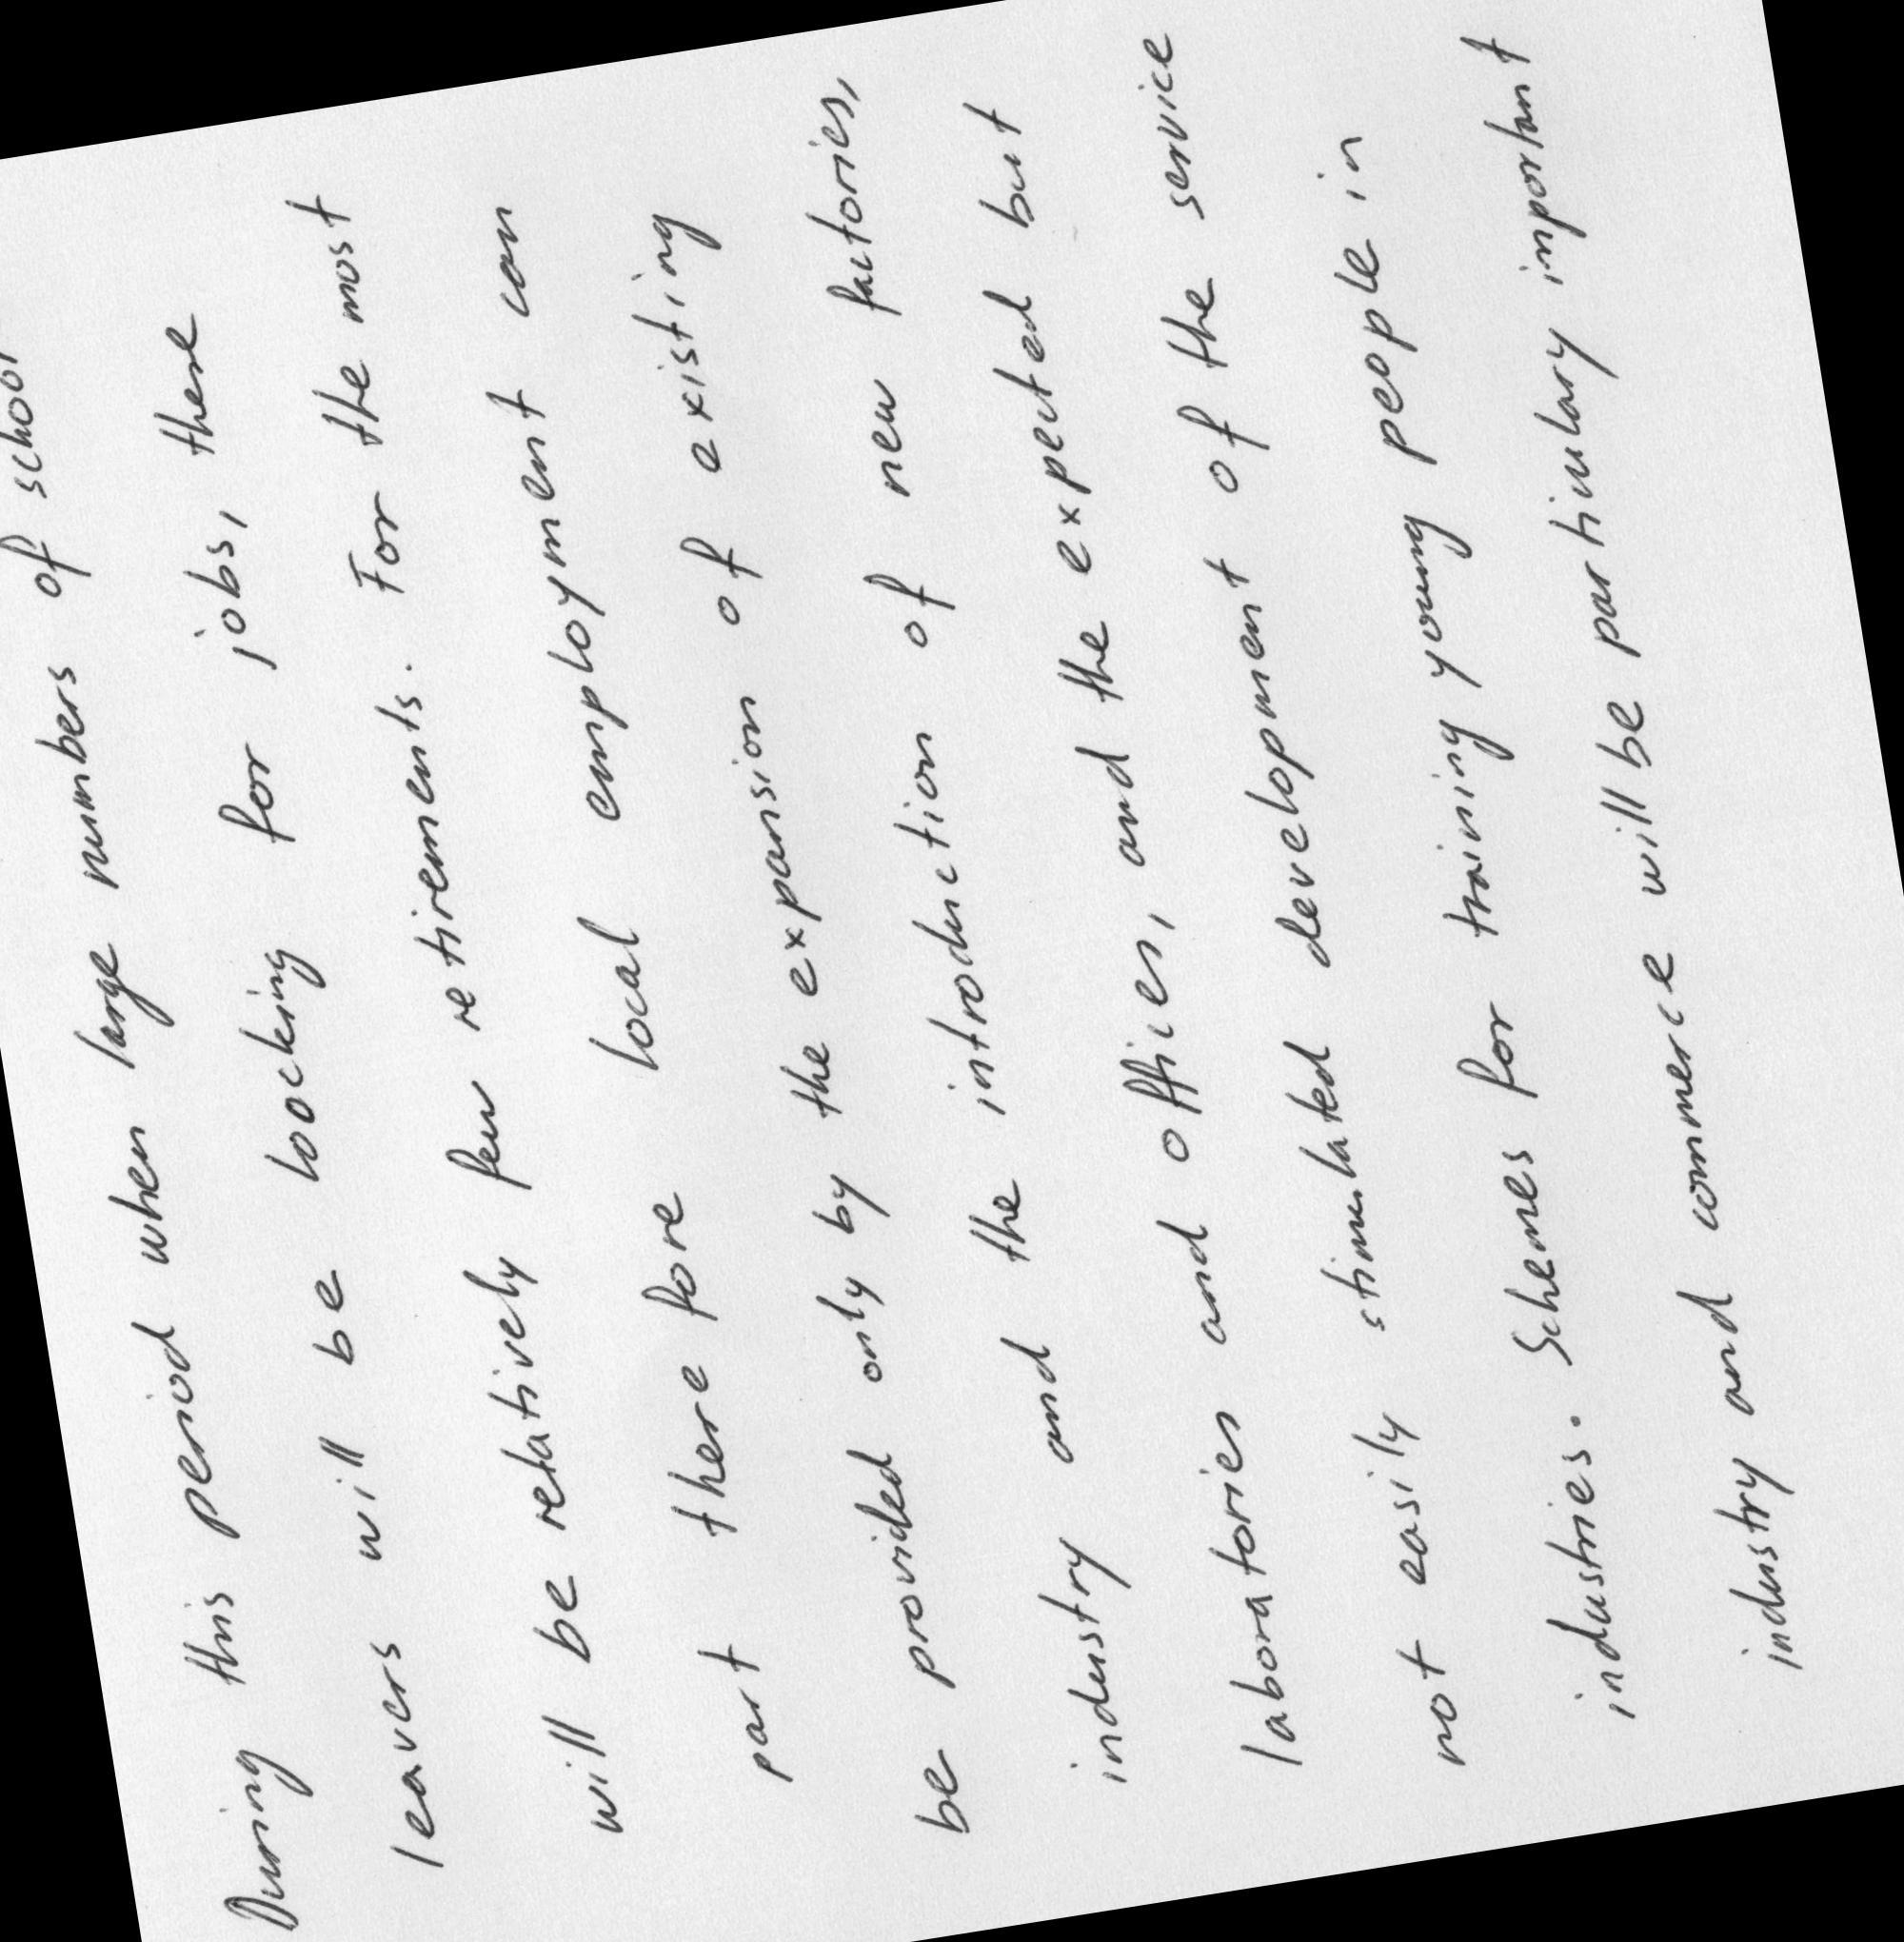 During this period when large numbers of school
leavers will be looking for jobs, there
will be relatively few retirements. For the most
part there fore local employment can
be provided only by the expansion of existing
industry and the introduction of new factories,
laboratories and offices, and the expected but
not easily stimulated development of the service
industries. Schemes for training young people in
industry and commerce will be particulary important